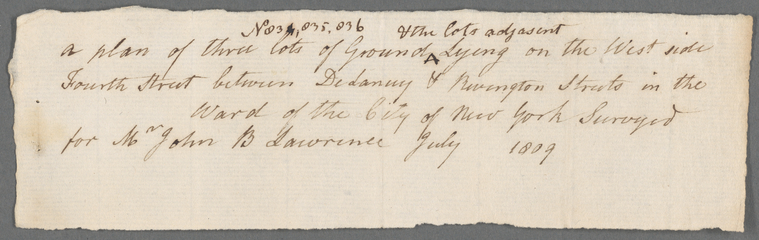 No 834, 835, 836 & the lots adjasent
a plan of three lots of Ground ^ Lyeng on the West side
Fourth Street between Delancey & Rivington Streets in the
Ward of the City of New York Surveyed
for Mr John B Lawrence July 1809